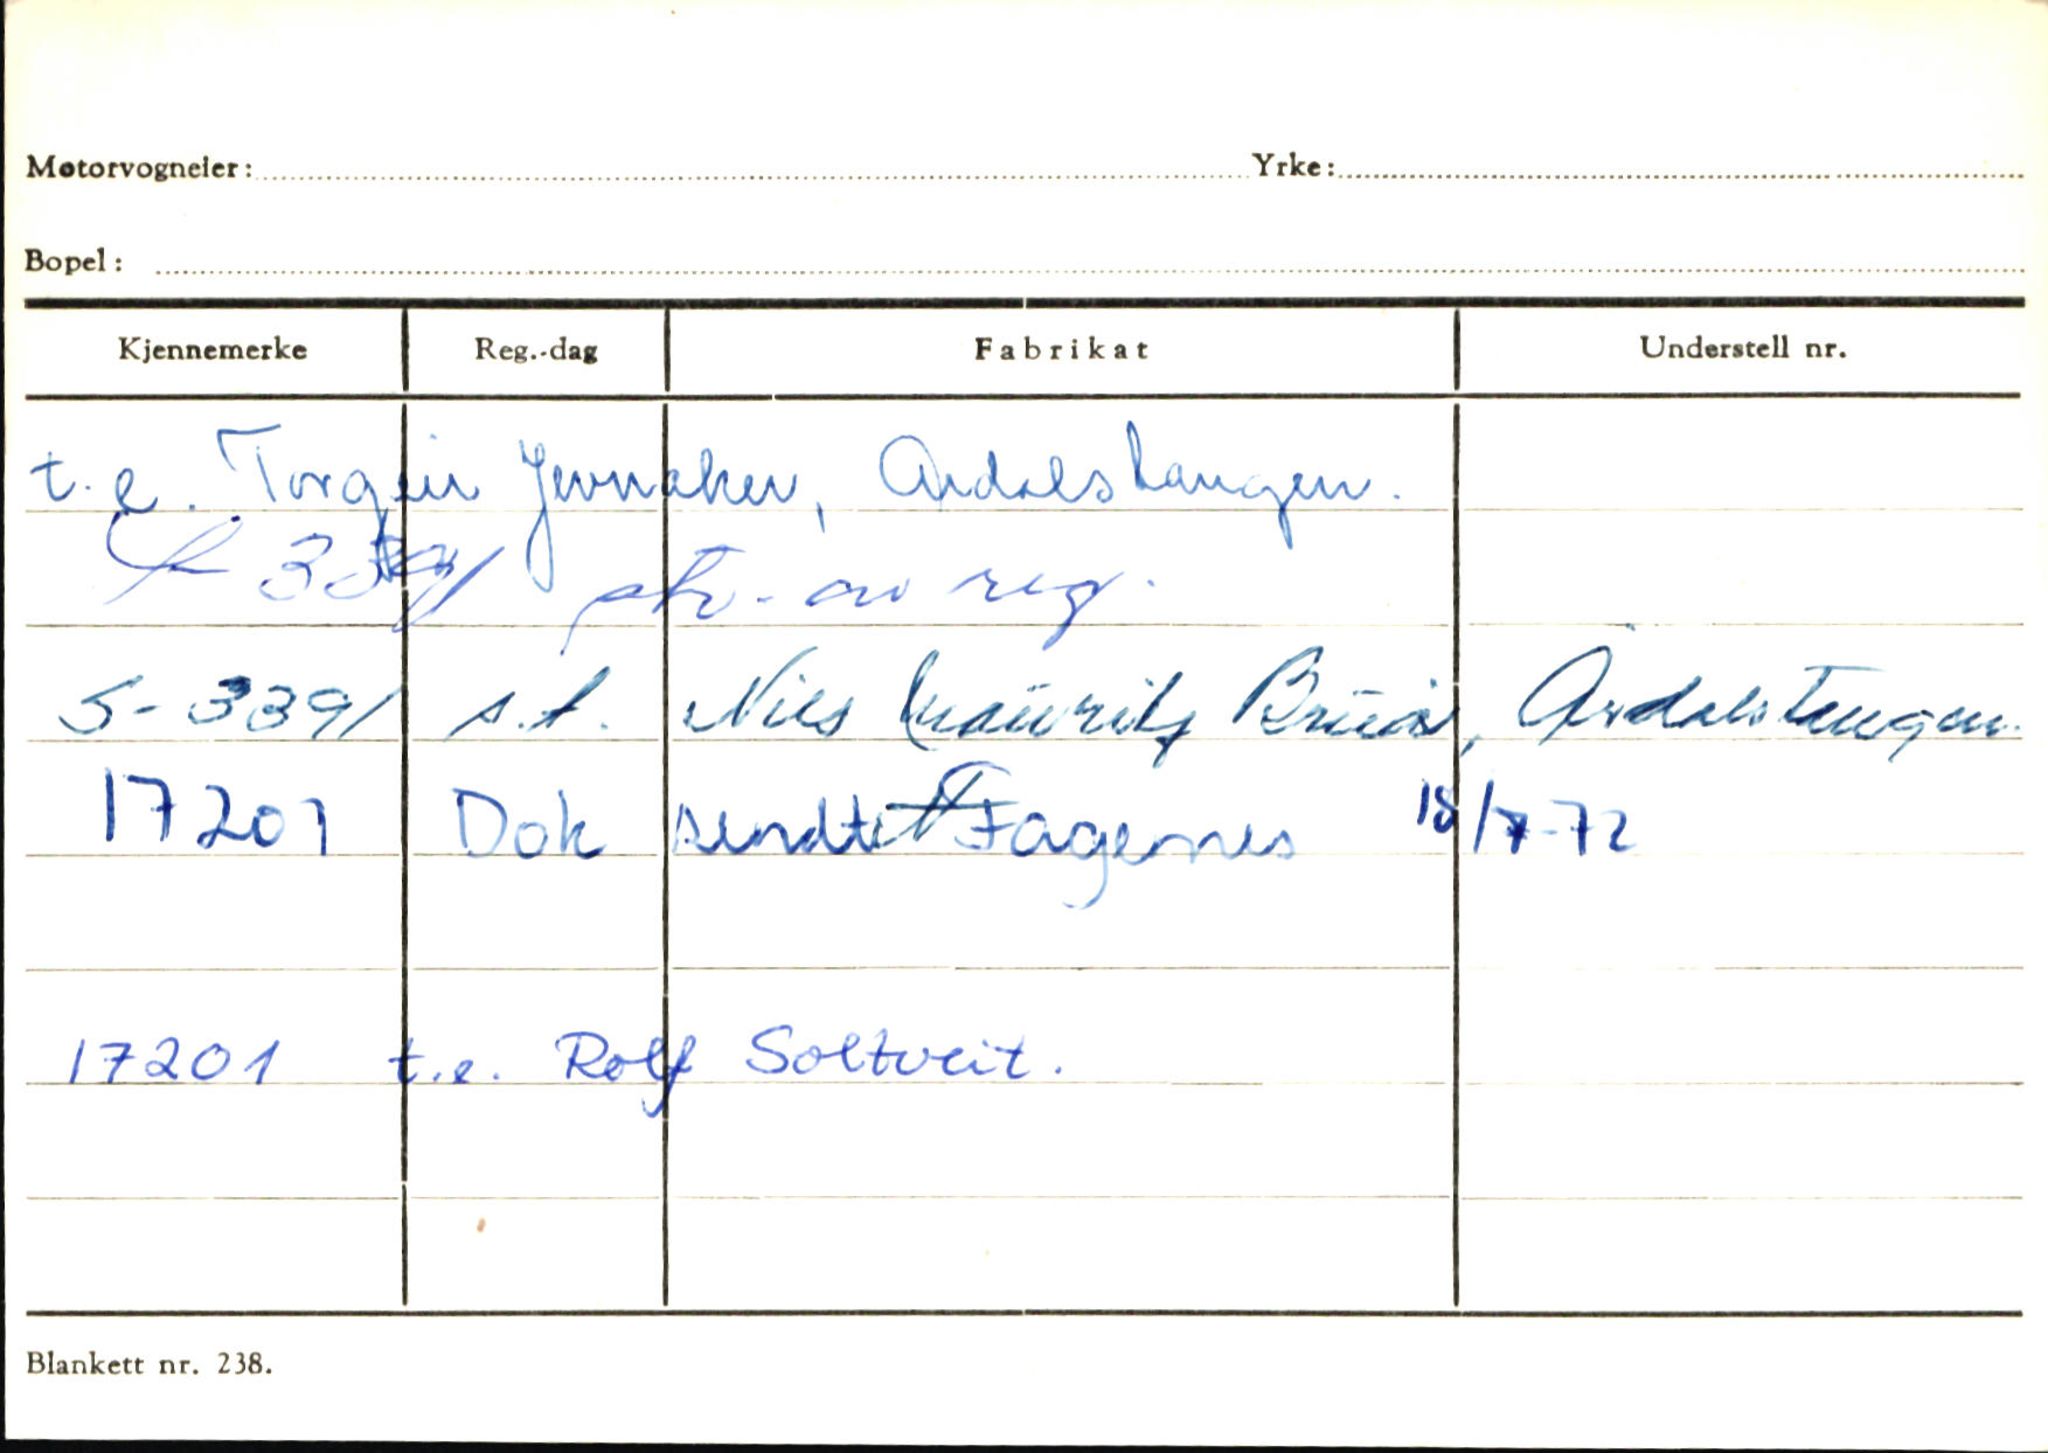 Motorvogneier: Yrke:
Bopel:
Kjennemerke Reg.-dag Fabrikat Understell nr.
t.e. Torgeir Jevnaker, Årdalstangen.
3391 av reg.
S-3391 s.t. Nils Mauritz Bruvik, Årdalstangen.
17201 Dok sendt Fagernes 18/7-72
17201 t.e. Rolf Soltveit.
Blankett nr. 238.